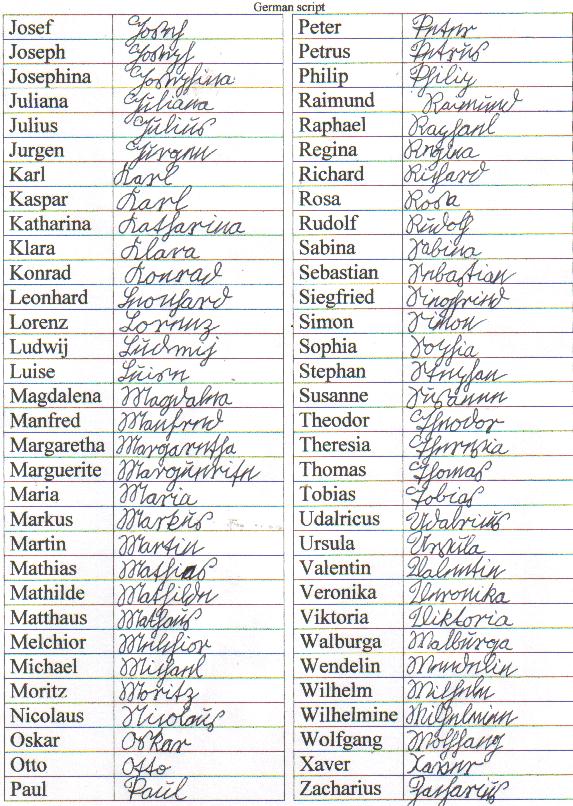 German script
Josef Josef
Joseph Joseph
Josephina Josephina
Juliana Juliana
Julius Julius
Jurgen Jurgen
Karl Karl
Kaspar Karl
Katharina Katharina
Klara Klara
Konrad Konrad
Leonhard Leonhard
Lorenz Lorenz
Ludwij Ludwij
Luise Luise
Magdalena Magdalena
Manfred Manfred
Margaretha Margaretha
Marguerite Marguerite
Maria Maria
Markus Markus
Martin Martin
Mathias Mathias
Mathilde Mathilde
Matthaus Mathaus
Melchior Melchior
Michael Michael
Moritz Moritz
Nicolaus Nicolaus
Oskar Oskar
Otto Otto
Paul Paul
Peter Peter
Petrus Petrus
Philip Philip
Raimund Raimund
Raphael Raphael
Regina Regina
Richard Richard
Rosa Rosa
Rudolf Rudolf
Sabina Sabina
Sebastian Sebastian
Siegfried Siegfried
Simon Simon
Sophia Sophia
Stephan Stephan
Susanne Susanne
Theodor Theodor
Theresia Theresia
Thomas Thomas
Tobias Tobias
Udalricus Udalricus
Ursula Ursula
Valentin Valentin
Veronika Veronika
Viktoria Viktoria
Walburga Walburga
Wendelin Wendelin
Wilhelm Wilhelm
Wilhelmine Wilhelmine
Wolfgang Wolfgang
Xaver Xaver
Zacharius Zacharius